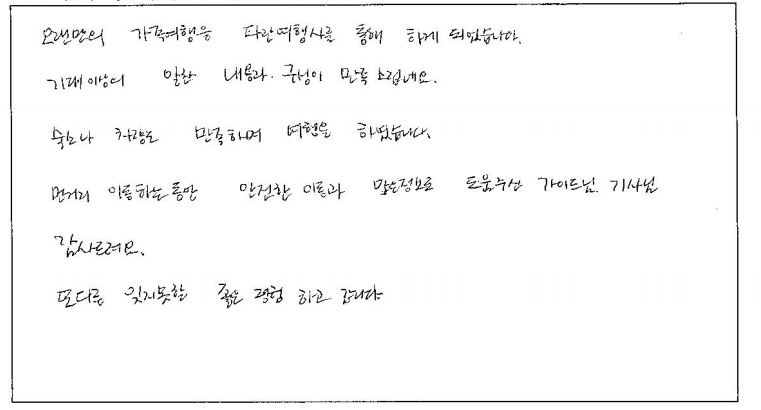 오랜만의 가족여행을 파란여행사를 통해 하게 되었습니다.
기대이상의 알찬 내용과 구성이 만족스럽네요.
숙소나 차량도 만족하며 여행을 하였습니다.
먼거리 이동하는동안 안전한 이동과 많은정보로 도움주신 가이드님. 기사님
감사드려요.
또다른 잊지못할 좋은 경험 하고 갑니다